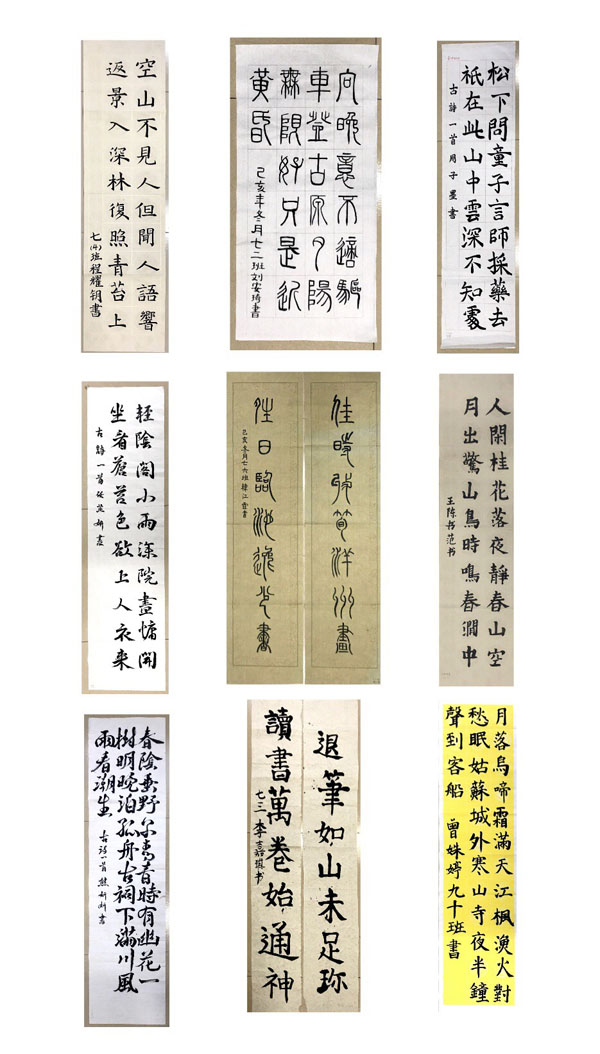 空山不見人但聞人語響
返景入深林復照青苔上
七(4)班程耀钥書
向晚意不適驅
車登古原夕陽
無限好只是近
黃昏
己亥年冬月七二班刘安琦書
松下問童子言師採藥去
祇在此山中雲深不知處
古詩一首周子墨書
輕陰閣小雨深院晝慵開
坐看蒼苔色欲上人衣來
古詩一首 書
佳時 筍洋州畫
往日臨池逸少書
己亥冬月七六班 書
人閑桂花落夜靜春山空
月出驚山鳥時鳴春澗中
王陈书范书
春陰垂野草青青時有幽花一
樹明晚泊孤舟古祠下滿川風
雨看潮生
古诗一首 書
退筆如山未足珍
讀書萬卷始通神
七三李嘉琪书
月落烏啼霜滿天江楓漁火對
愁眠姑蘇城外寒山寺夜半鐘
聲到客船 曾姝婷九十班書